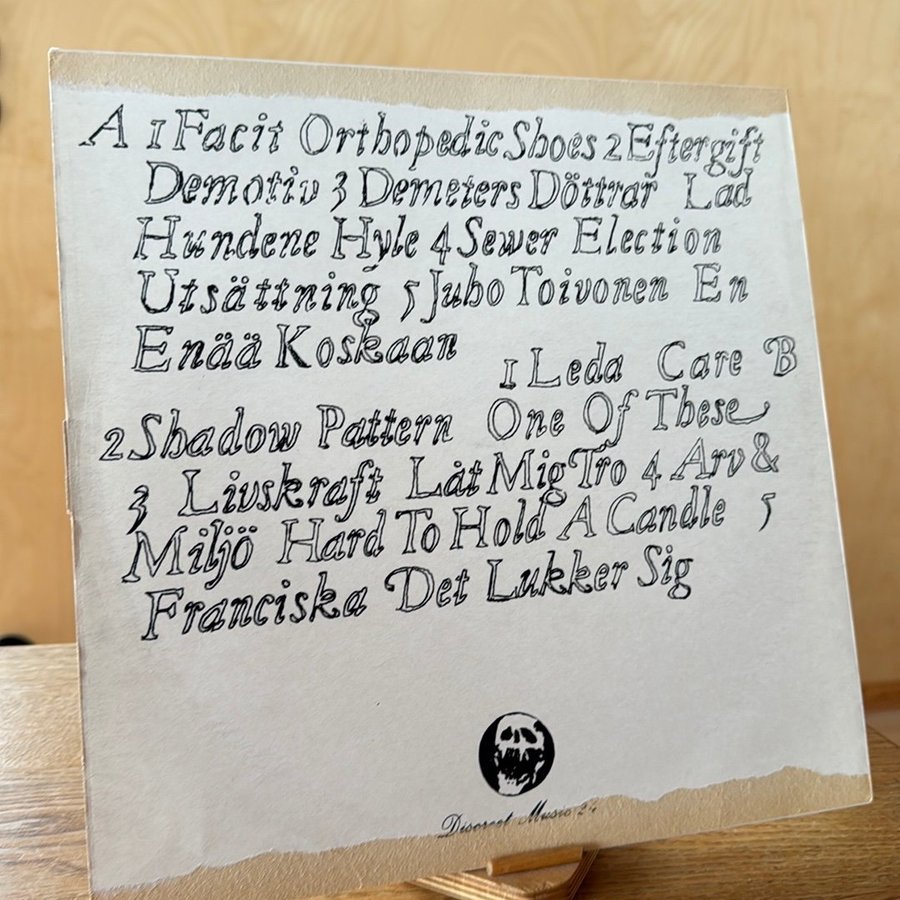 A 1 Facit Orthopedic Shoes 2 Eftergift
Demotiv 3 Demeters Döttrar Lad
Hundene Hyle 4 Sewer Election
Utsättning 5 Juho Toivonen En
Enää Koskaan
1 Leda Care B
2 Shadow Pattern One Of These
3 Livskraft Låt Mig Tro 4 Arv &
Miljö Hard To Hold A Candle 5
Franciska Det Lukker Sig
Discreet Music